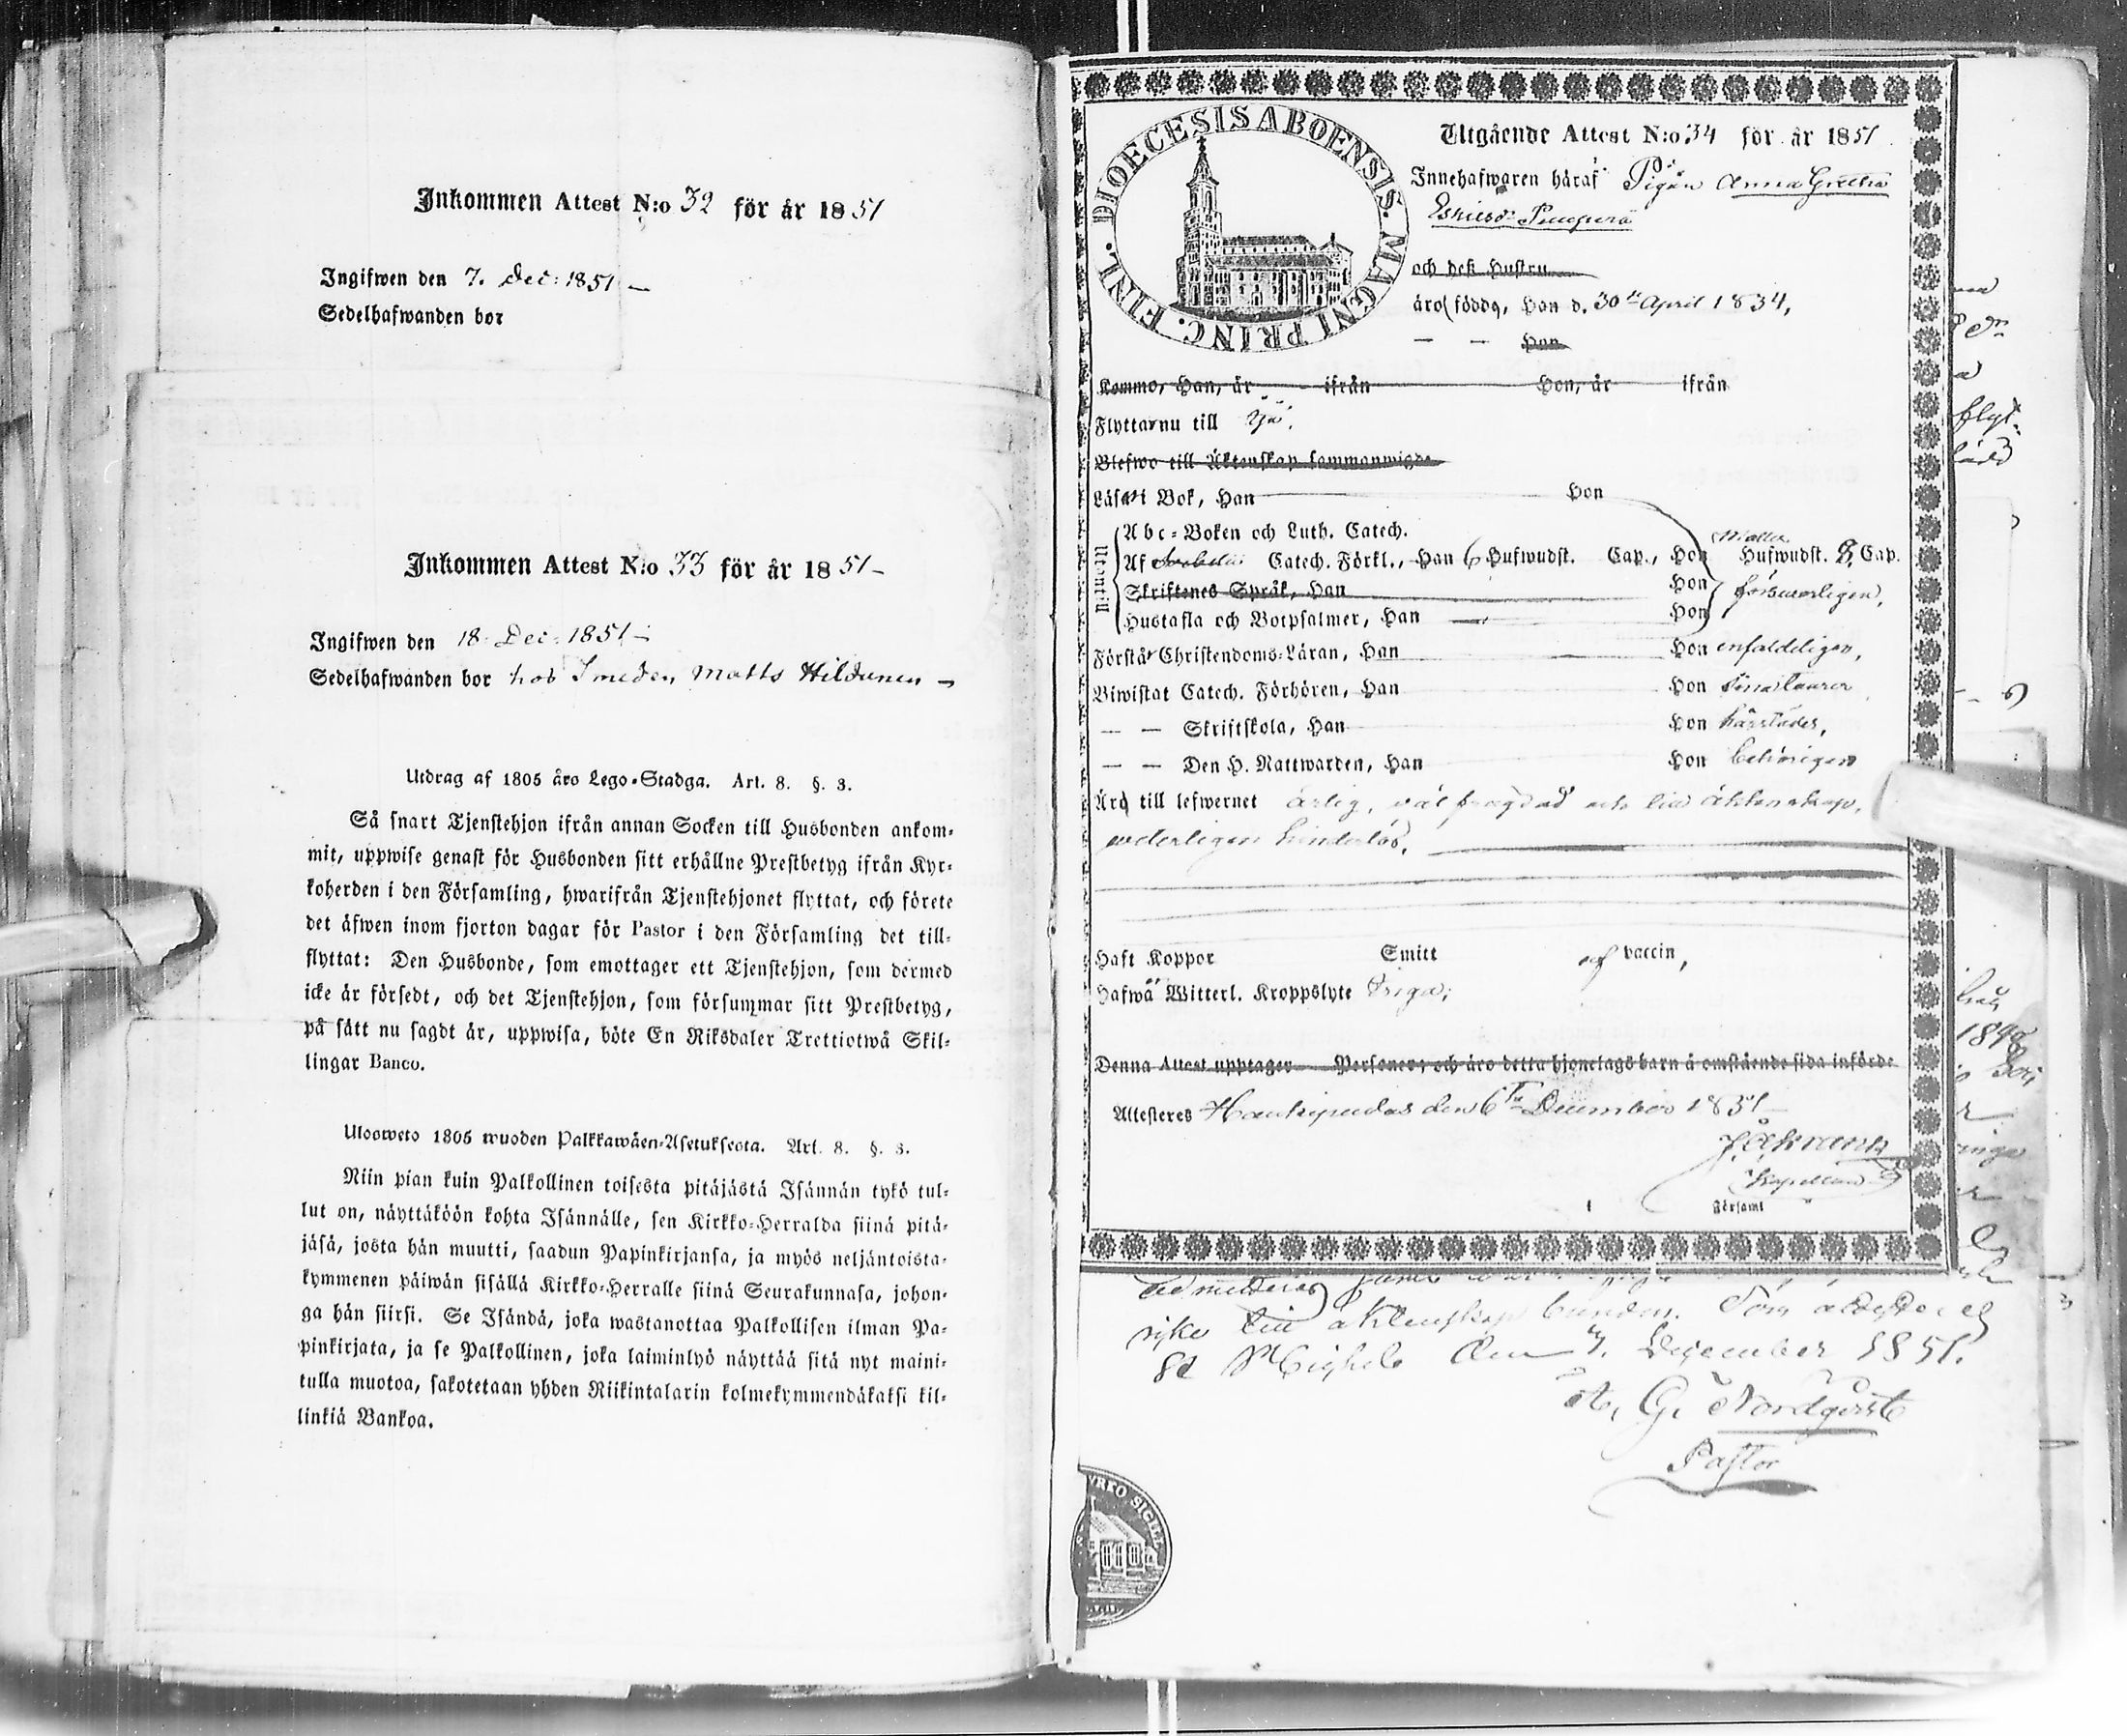 Inkommen Attest N:o 32 för år 1851
Ingifwen den 7. Dec: 1851 —
Sedelhafwanden bor
Inkommen Attest N:o 33 för år 1851 —
Ingifwen den 18 Dec: 1851 —
Sedelhafwanden bor hos Smeden Matts Hildunen —
Utdrag af 1805 åro Lego-Stadga. Art. 8. §. 3.
Så snart Tjenstehjon ifrån annan Socken till Husbonden ankom-
mit, uppwise genast för Husbonden sitt erhållne Prestbetyg ifrån Kyr-
koherden i den Församling, hwarifrån Tjenstehjonet flyttat, och förete
det äfwen inom fjorton dagar för Pastor i den Församling det till-
flyttat: Den Husbonde, som emottager ett Tjenstehjon, som dermed
icke är försedt, och det Tjenstehjon, som försummar sitt Prestbetyg,
på sätt nu sagdt är, uppwisa, böte En Riksdaler Trettiotwå Skil-
lingar Banco.
Ulooweto 1805 wuoden Palkkawäen-Asetuksesta. Art. 8. §. 3.
Niin pian kuin Palkollinen toisesta pitäjästä Isännän tykö tul-
lut on, näyttäköön kohta Isännälle, sen Kirkko-Herralda siinä pitä-
jäsä, josta hän muutti, saadun Papinkirjansa, ja myös neljäntoista-
kymmenen päiwän sisällä Kirkko-Herralle siinä Seurakunnasa, johon-
ga hän siirsi. Se Isändä, joka wastanottaa Palkollisen ilman Pa-
pinkirjata, ja se Palkollinen, joka laiminlyö näyttää sitä nyt maini-
tulla muotoa, sakotetaan yhden Riikintalarin kolmekymmendäkaksi kil-
linkiä Bankoa.
DIOECESIS ABOENSIS. MAGNI PRINC. FINL.
Utgående Attest N:o 34 för år 1851
Innehafwaren häraf Pigan Anna Greta
och deß Hustru
äro född, Han d. 30 April 1834,
— — Hon
Kommo, Han, år ifrån Hon, år ifrån
Flytta nu till Ijo.
Blefwo till Äktenskap sammanwigde
Läsa i Bok, Han Hon
Abc-Boken och Luth. Catech.
Af Catech. Förkl., Han 6 Hufwudst. Cap., Hon Hufwudst. 8, Cap.
Skriftenes Språk, Han Hon försvarligen,
Hustafla och Botpsalmer, Han Hon
Förstår Christendoms-Läran, Han Hon enfaldeligen,
Biwistat Catech. Förhören, Han Hon
— — Skriftskola, Han Hon härstädes,
— — Den H. Nattwarden, Han Hon behörigen
Äro till lefwernet ärlig, välfrägdad och till äktenskap,
veterligen hinderlös.
Haft Koppor Smitt af vaccin,
Hafwa Witterl. Kroppslyte Inga;
Denna Attest upptager Personer; och äro detta hjonelags barn å omstående sida införde
Attesteres Haukipudas den 6 December 1851
Kapellan
i Församl
till äktenskap bunden. Som attesteras
St Michels den 7. December 1851.
G. Nordqvist
Pastor
YRKO SIGILL